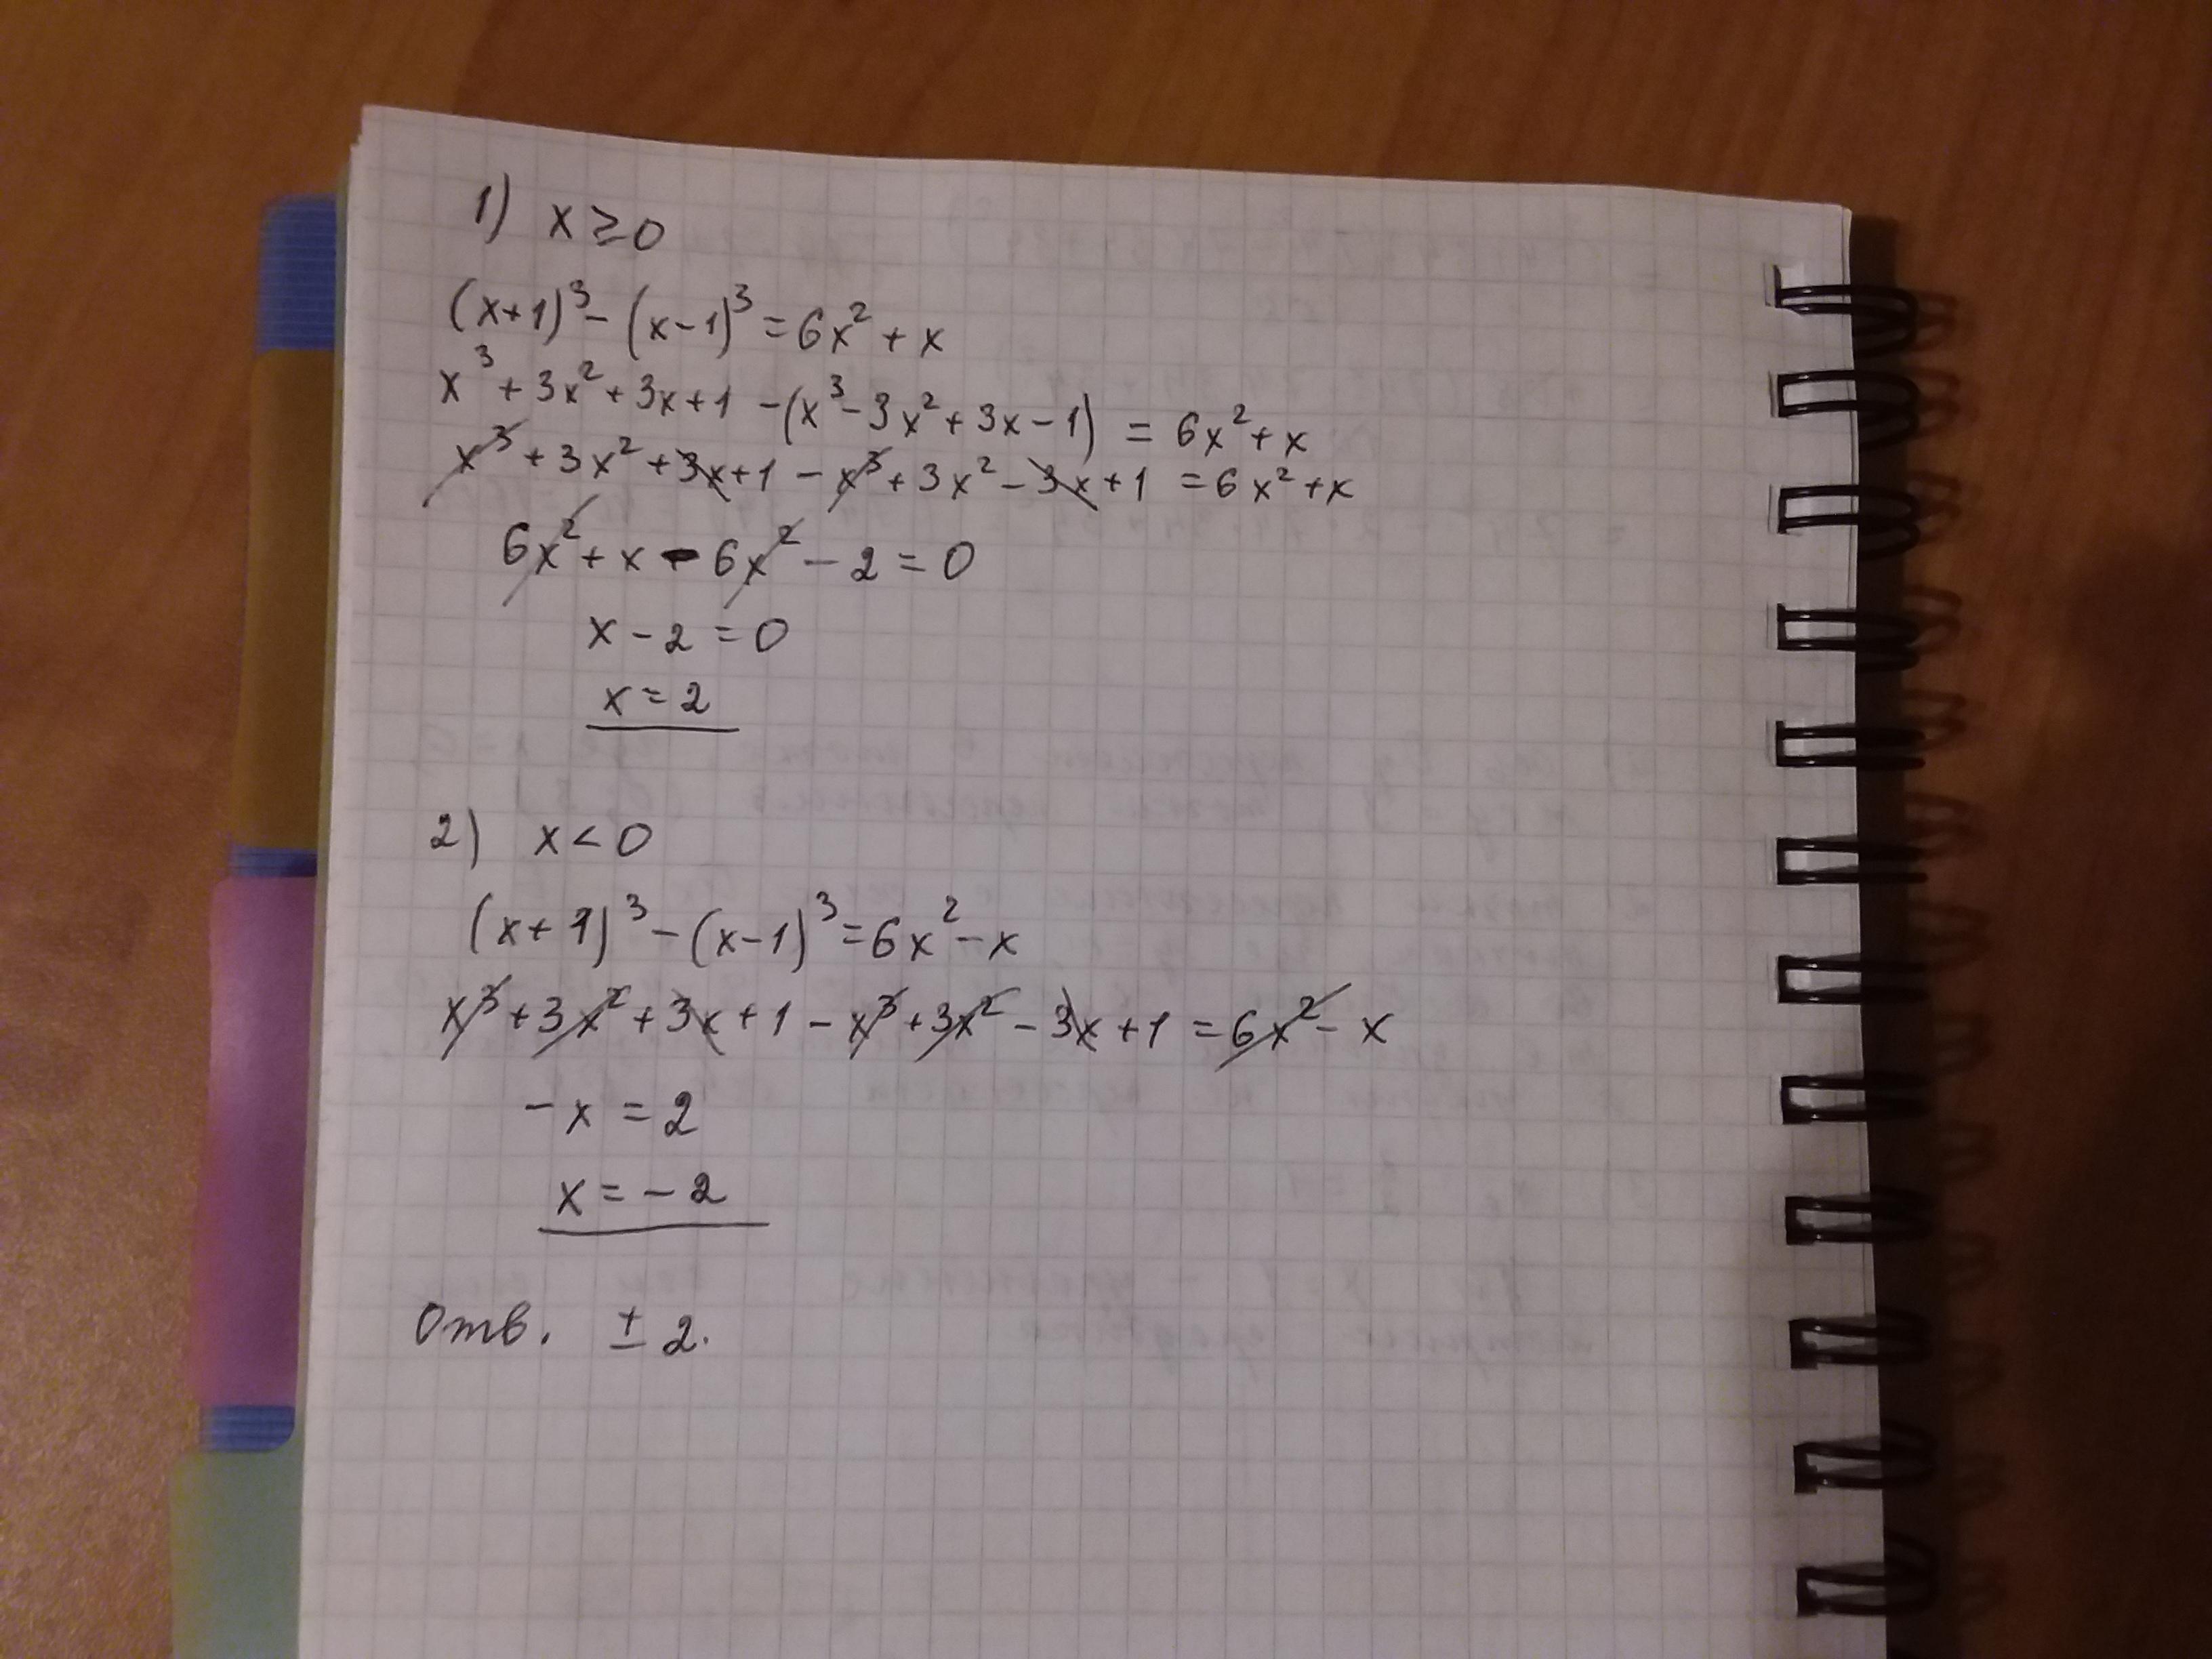 1) x ≥ 0
(x+1)³ - (x-1)³ = 6x² + x
x³ + 3x² + 3x + 1 - (x³ - 3x² + 3x - 1) = 6x² + x
x³ + 3x² + 3x + 1 - x³ + 3x² - 3x + 1 = 6x² + x
6x² + x - 6x² - 2 = 0
x - 2 = 0
x = 2
2) x < 0
(x+1)³ - (x-1)³ = 6x² - x
x³ + 3x² + 3x + 1 - x³ + 3x² - 3x + 1 = 6x² - x
-x = 2
x = -2
Отв. ± 2.